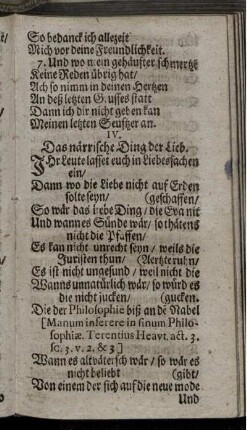 So bedanck ich allezeit
Mich vor deine Freundlichkeit.
7. Und wo mein gehäufter schmertz
Keine Reden übrig hat/
Ach so nimm in deinen Hertzen
An deß letzten Grusses statt
Dann ich dir nicht geben kan
Meinen letzten Seufftzer an.
IV.
Das närrische Ding der Lieb.
IHr Leute lasset euch in Liebessachen
ein/
Dann wo die Liebe nicht auf Erden
solte seyn/ (geschaffen/
So wär das liebe Ding/ die Eva nit
Und wannes Sünde wär/ so thätens
nicht die Pfaffen/
Es kan nicht unrecht seyn/ weils die
Juristen thun/ (Aertzte ruhn/
Es ist nicht ungesund/ weil nicht die
Wanns unnatürlich wär/ so würd es
die nicht jucken/ (gucken.
Die der Philosophie biß an de Nabel
[Manum inserere in sinum Philo-
sophiæ. Terentius Heavt. act. 3.
sc. 3. v. 2. & 3]
Wann es altvätersch wär/ so wär es
nicht beliebt (gibt/
Von einem der sich auf die neue mode
Und